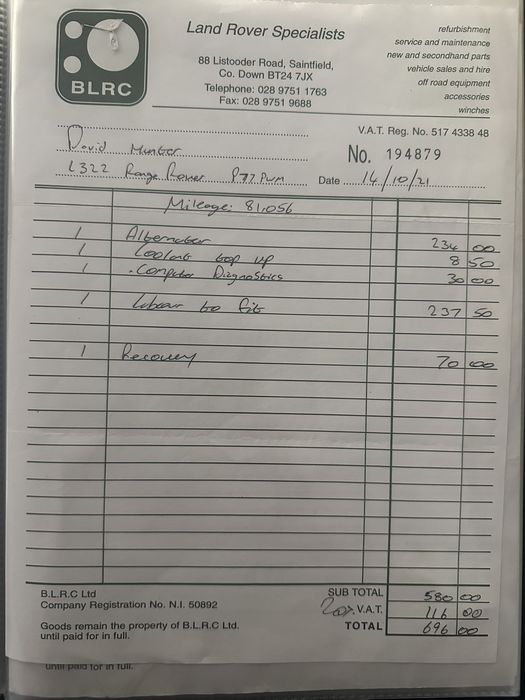 Land Rover Specialists
88 Listooder Road, Saintfield,
Co. Down BT24 7JX
Telephone: 028 9751 1763
Fax: 028 9751 9688
refurbishment
service and maintenance
new and secondhand parts
vehicle sales and hire
off road equipment
accessories
winches
BLRC
V.A.T. Reg. No. 517 4338 48
David Hunter
No. 194879
L322 Range Rover P77 PWM
Date 14/10/21
Mileage: 81,056
1 Alternator 234 00
1 Coolant top up 8 50
1 Computer Diagnostics 30 00
1 Labour to fit 237 50
1 Recovery 70 00
B.L.R.C Ltd SUB TOTAL 580 00
Company Registration No. N.I. 50892 20% V.A.T. 116 00
Goods remain the property of B.L.R.C Ltd. TOTAL 696 00
until paid for in full.
until paid for in full.